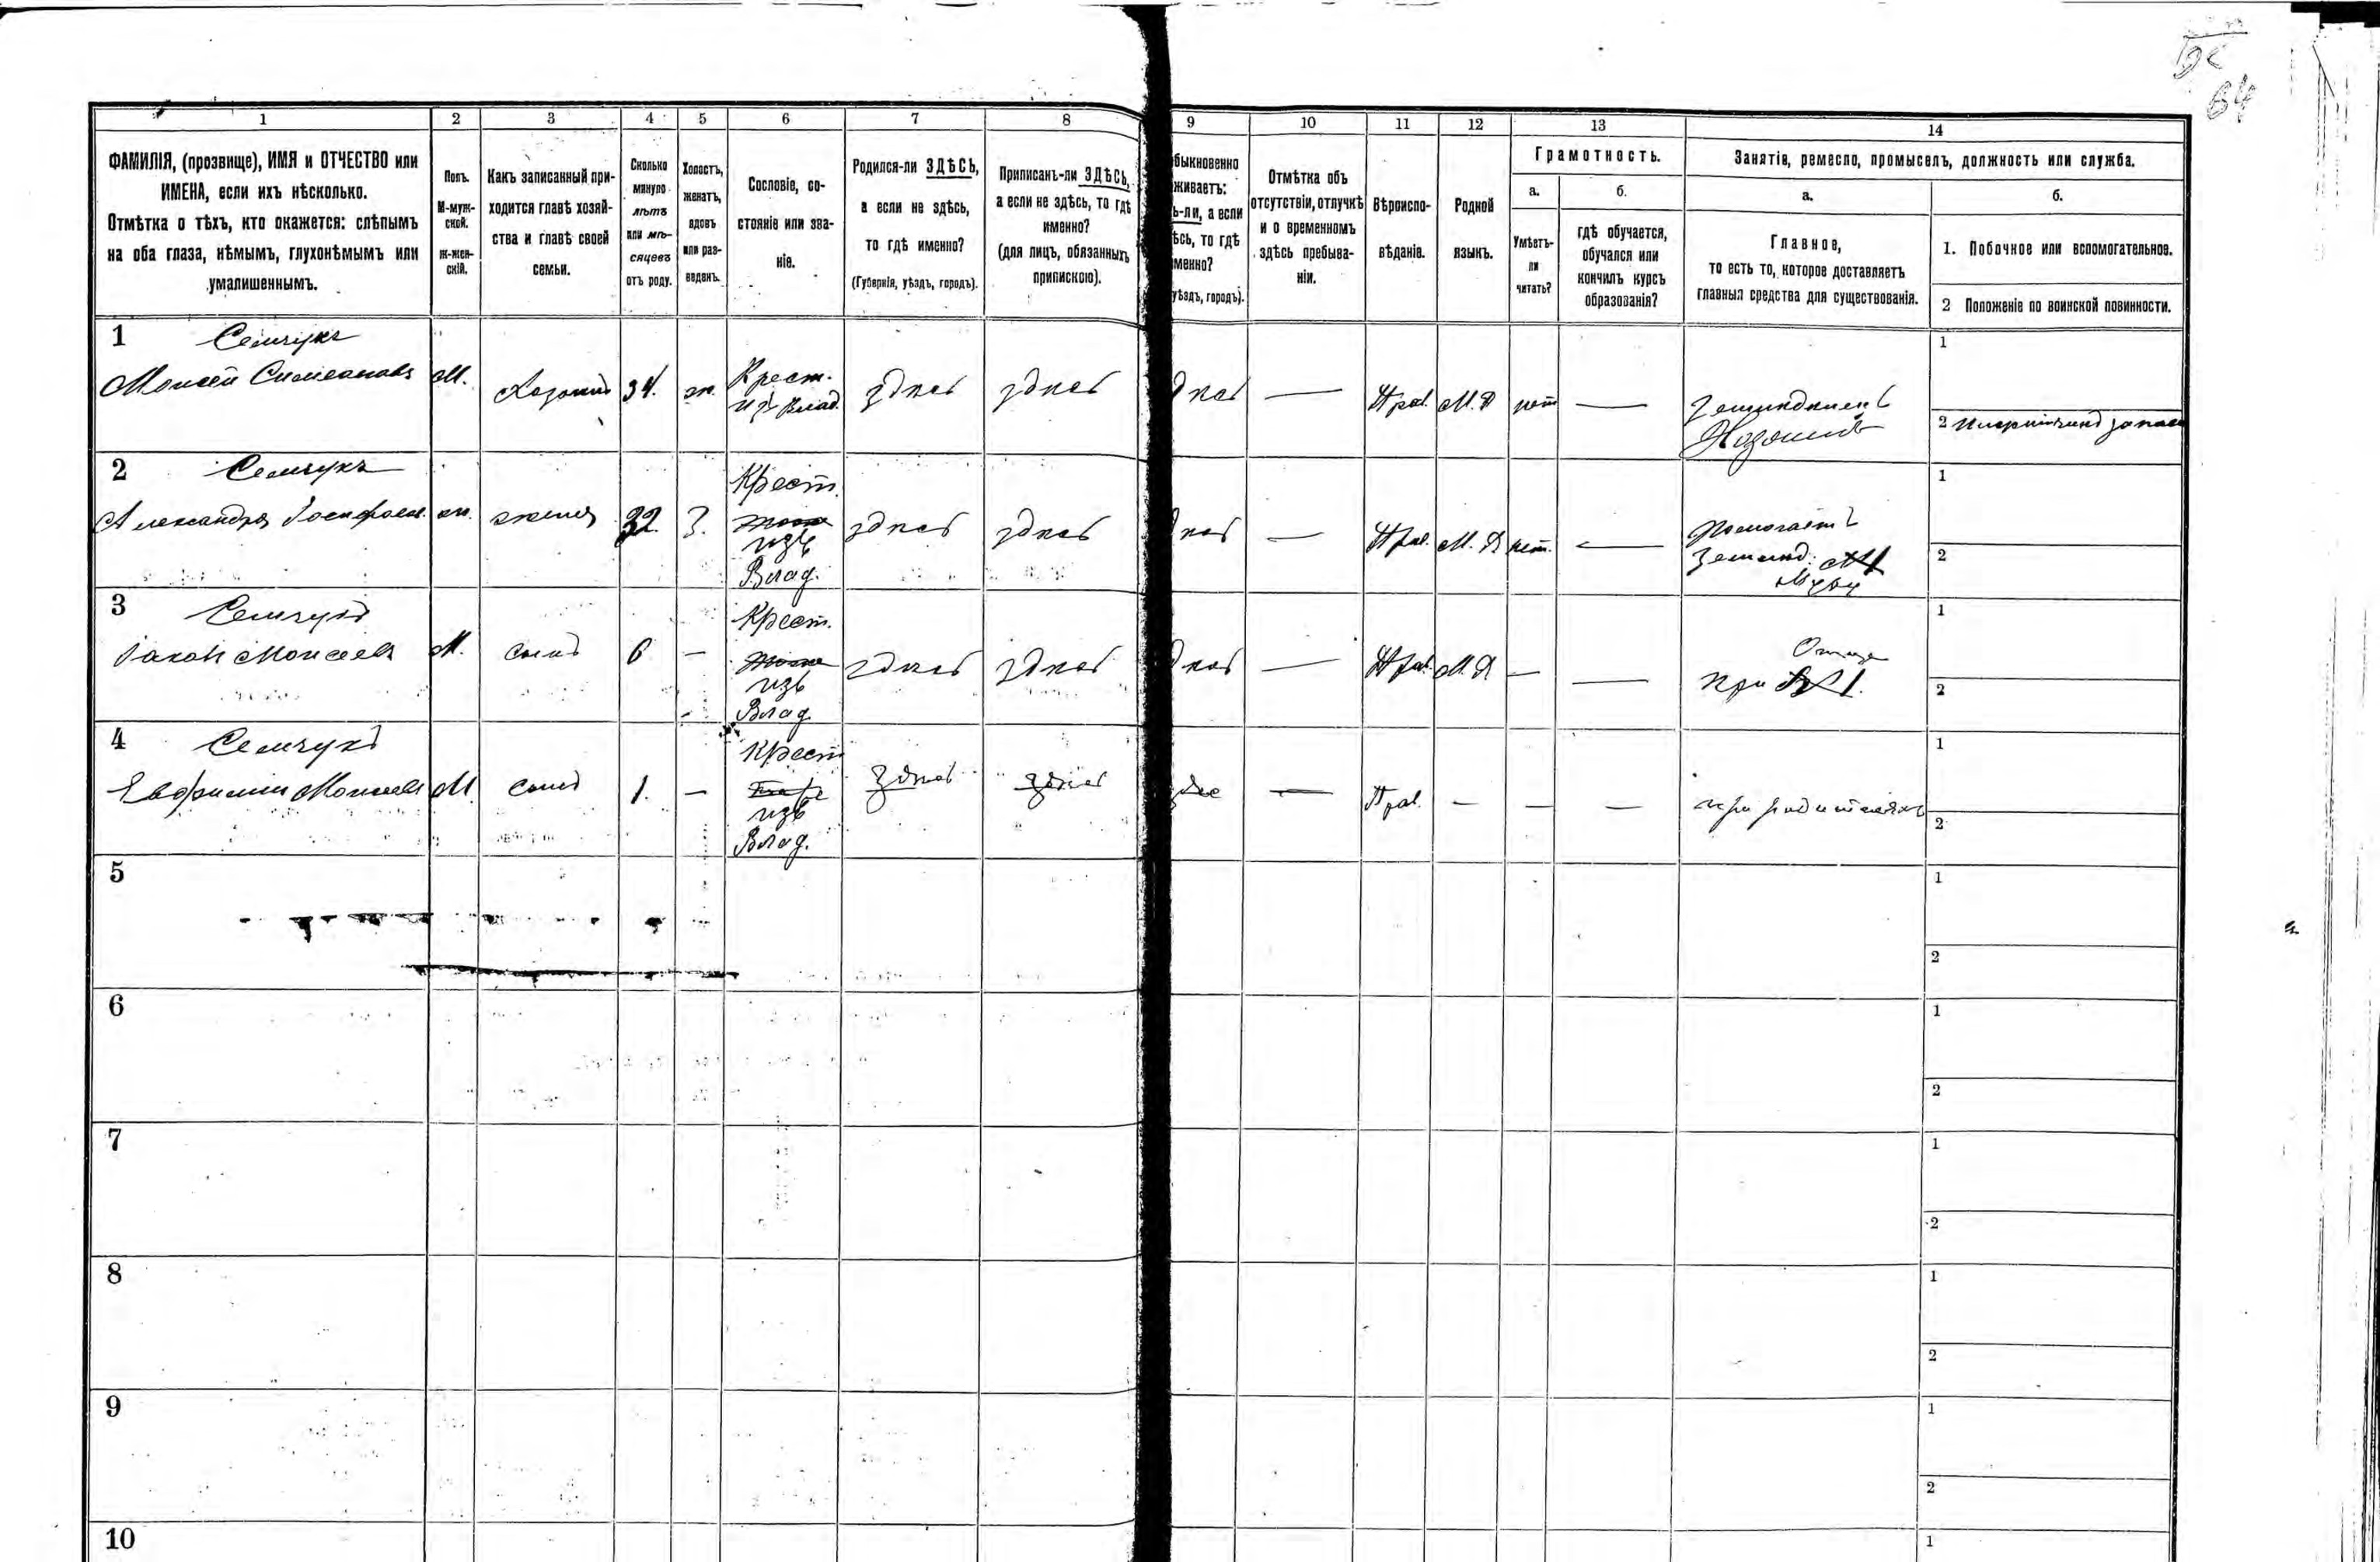 64
1 2 3 4 5 6 7 8 9 10 11 12 13 14
ФАМИЛІЯ, (прозвище), ИМЯ и ОТЧЕСТВО или
ИМЕНА, если ихъ нѣсколько.
Отмѣтка о тѣхъ, кто окажется: слѣпымъ
на оба глаза, нѣмымъ, глухонѣмымъ или
умалишеннымъ.
Полъ.
М-муж-
ской.
ж-жен-
скій.
Какъ записанный при-
ходится главѣ хозяй-
ства и главѣ своей
семьи.
Сколько
минуло
лѣтъ
или мѣ-
сяцевъ
отъ роду.
Холостъ,
женатъ,
вдовъ
или раз-
веденъ.
Сословіе, со-
стояніе или зва-
ніе.
Родился-ли ЗДѢСЬ,
а если не здѣсь,
то гдѣ именно?
(Губернія, уѣздъ, городъ).
Приписанъ-ли ЗДѢСЬ,
а если не здѣсь, то гдѣ
именно?
(для лицъ, обязанныхъ
припискою).
быкновенно
живаетъ:
ь-ли, а если
ѣсь, то гдѣ
менно?
уѣздъ, городъ).
Отмѣтка объ
отсутствіи, отлучкѣ
и о временномъ
здѣсь пребыва-
ніи.
Вѣроиспо-
вѣданіе.
Родной
языкъ.
Грамотность.
а.
Умѣетъ-
ли
читать?
б.
гдѣ обучается,
обучался или
кончилъ курсъ
образованія?
Занятіе, ремесло, промыселъ, должность или служба.
а.
Главное,
то есть то, которое доставляетъ
главныя средства для существованія.
б.
1. Побочное или вспомогательное.
2 Положеніе по воинской повинности.
1 Семчукъ
Моисей Симеоновъ М. Хозяинъ 34. ж. Крест. изъ Влад. здѣсь здѣсь дѣсь — Прав. М.Р нѣт — Земледѣлецъ
Хозяинъ
1
2
2 Семчукъ
Александра Іосифова ж. жена 32. З. Крест.
изъ
Влад.
здѣсь здѣсь дѣсь — Прав. М.Р нѣт. — Помогаетъ
Землед.
Мужу
1
2
3 Семчукъ
Іаковъ Моисеевъ М. сынъ 6 — Крест.
изъ
Влад.
здѣсь здѣсь дѣсь — Прав. М.Р — — при Отцѣ
1
2
4 Семчукъ
Евфимій Моисеевъ М сынъ 1. — Крест
изъ
Влад.
здѣсь здѣсь — Прав. — — — при родителяхъ
1
2
5
1
2
6
1
2
7
1
2
8
1
2
9
1
2
10
1